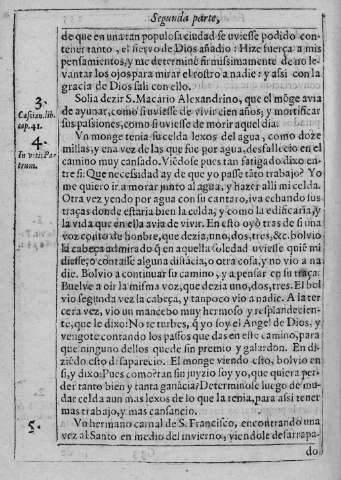 Segunda parte,
de que en vna tan populosa ciudad se vuiesse podido con-
tener tanto, el sieruo de Dios añadio: Hize fuerça a mis
pensamientos, y me determinè firmissimamente de no le-
uantar los ojos para mirar el rostro a nadie: y assi con la
gracia de Dios sali con ello.
3. Solia dezir S. Macario Alexandrino, que el mõge auia
Cassian. lib. de ayunar, como si vuiesse de viuir cien años; y mortificar
cap. 41. sus passiones, como si vuiesse de morir aquel dia.
4. Vn monge tenia su celda lexos del agua, como doze
In vitis Pa- millas, y en a vez de las que fue por agua, desfallecio en el
trum. camino muy cansado. Viẽdose pues tan fatigado dixo en-
tre si: Que necessidad ay de que yo passe tãto trabajo? Yo
me quiero ir a morar junto al agua, y hazer alli mi celda.
Otra vez yendo por agua con su cantaro, iva echando sus
traças donde estaria bien la celda, y como la edificaria, y
la vida que en ella auia de viuir. En esto oyò tras de si vna
voz como de hombre, que dezia, vno, dos, tres, &c. boluio
la cabeça admirado q̃ en aquella soledad vuiesse quiẽ mi
diesse, o contasse alguna distãcia, o otra cosa, y no vio a na
die. Boluio a continuar su camino, y a pensar en su traça.
Buelue a oir la misma voz, que dezia vno, dos, tres. El bol
vio segunda vez la cabeça, y tanpoco vio a nadie. A la ter
cera vez, vio vn mancebo muy hermoso y resplandecien-
te, que le dixo: No te turbes, q̃ yo soy el Angel de Dios, y
vengo te contando los passos que das en este camino, para
que ninguno dellos quede sin premio y galardon. En di-
ziẽdo esto desaparecio. El monge viendo esto, boluio en
si, y dixo: Pues como? tan sin juyzio soy yo, que quiera per-
der tanto bien y tanta ganãcia? Determinose luego de mu-
dar celda aun mas lexos de lo que la tenia, para assi tener
mas trabajo, y mas cansancio.
5. Vn hermano carnal de S. Francisco, encontrando vna
vez al Santo en medio del inuierno, viendole desarrapa-
do